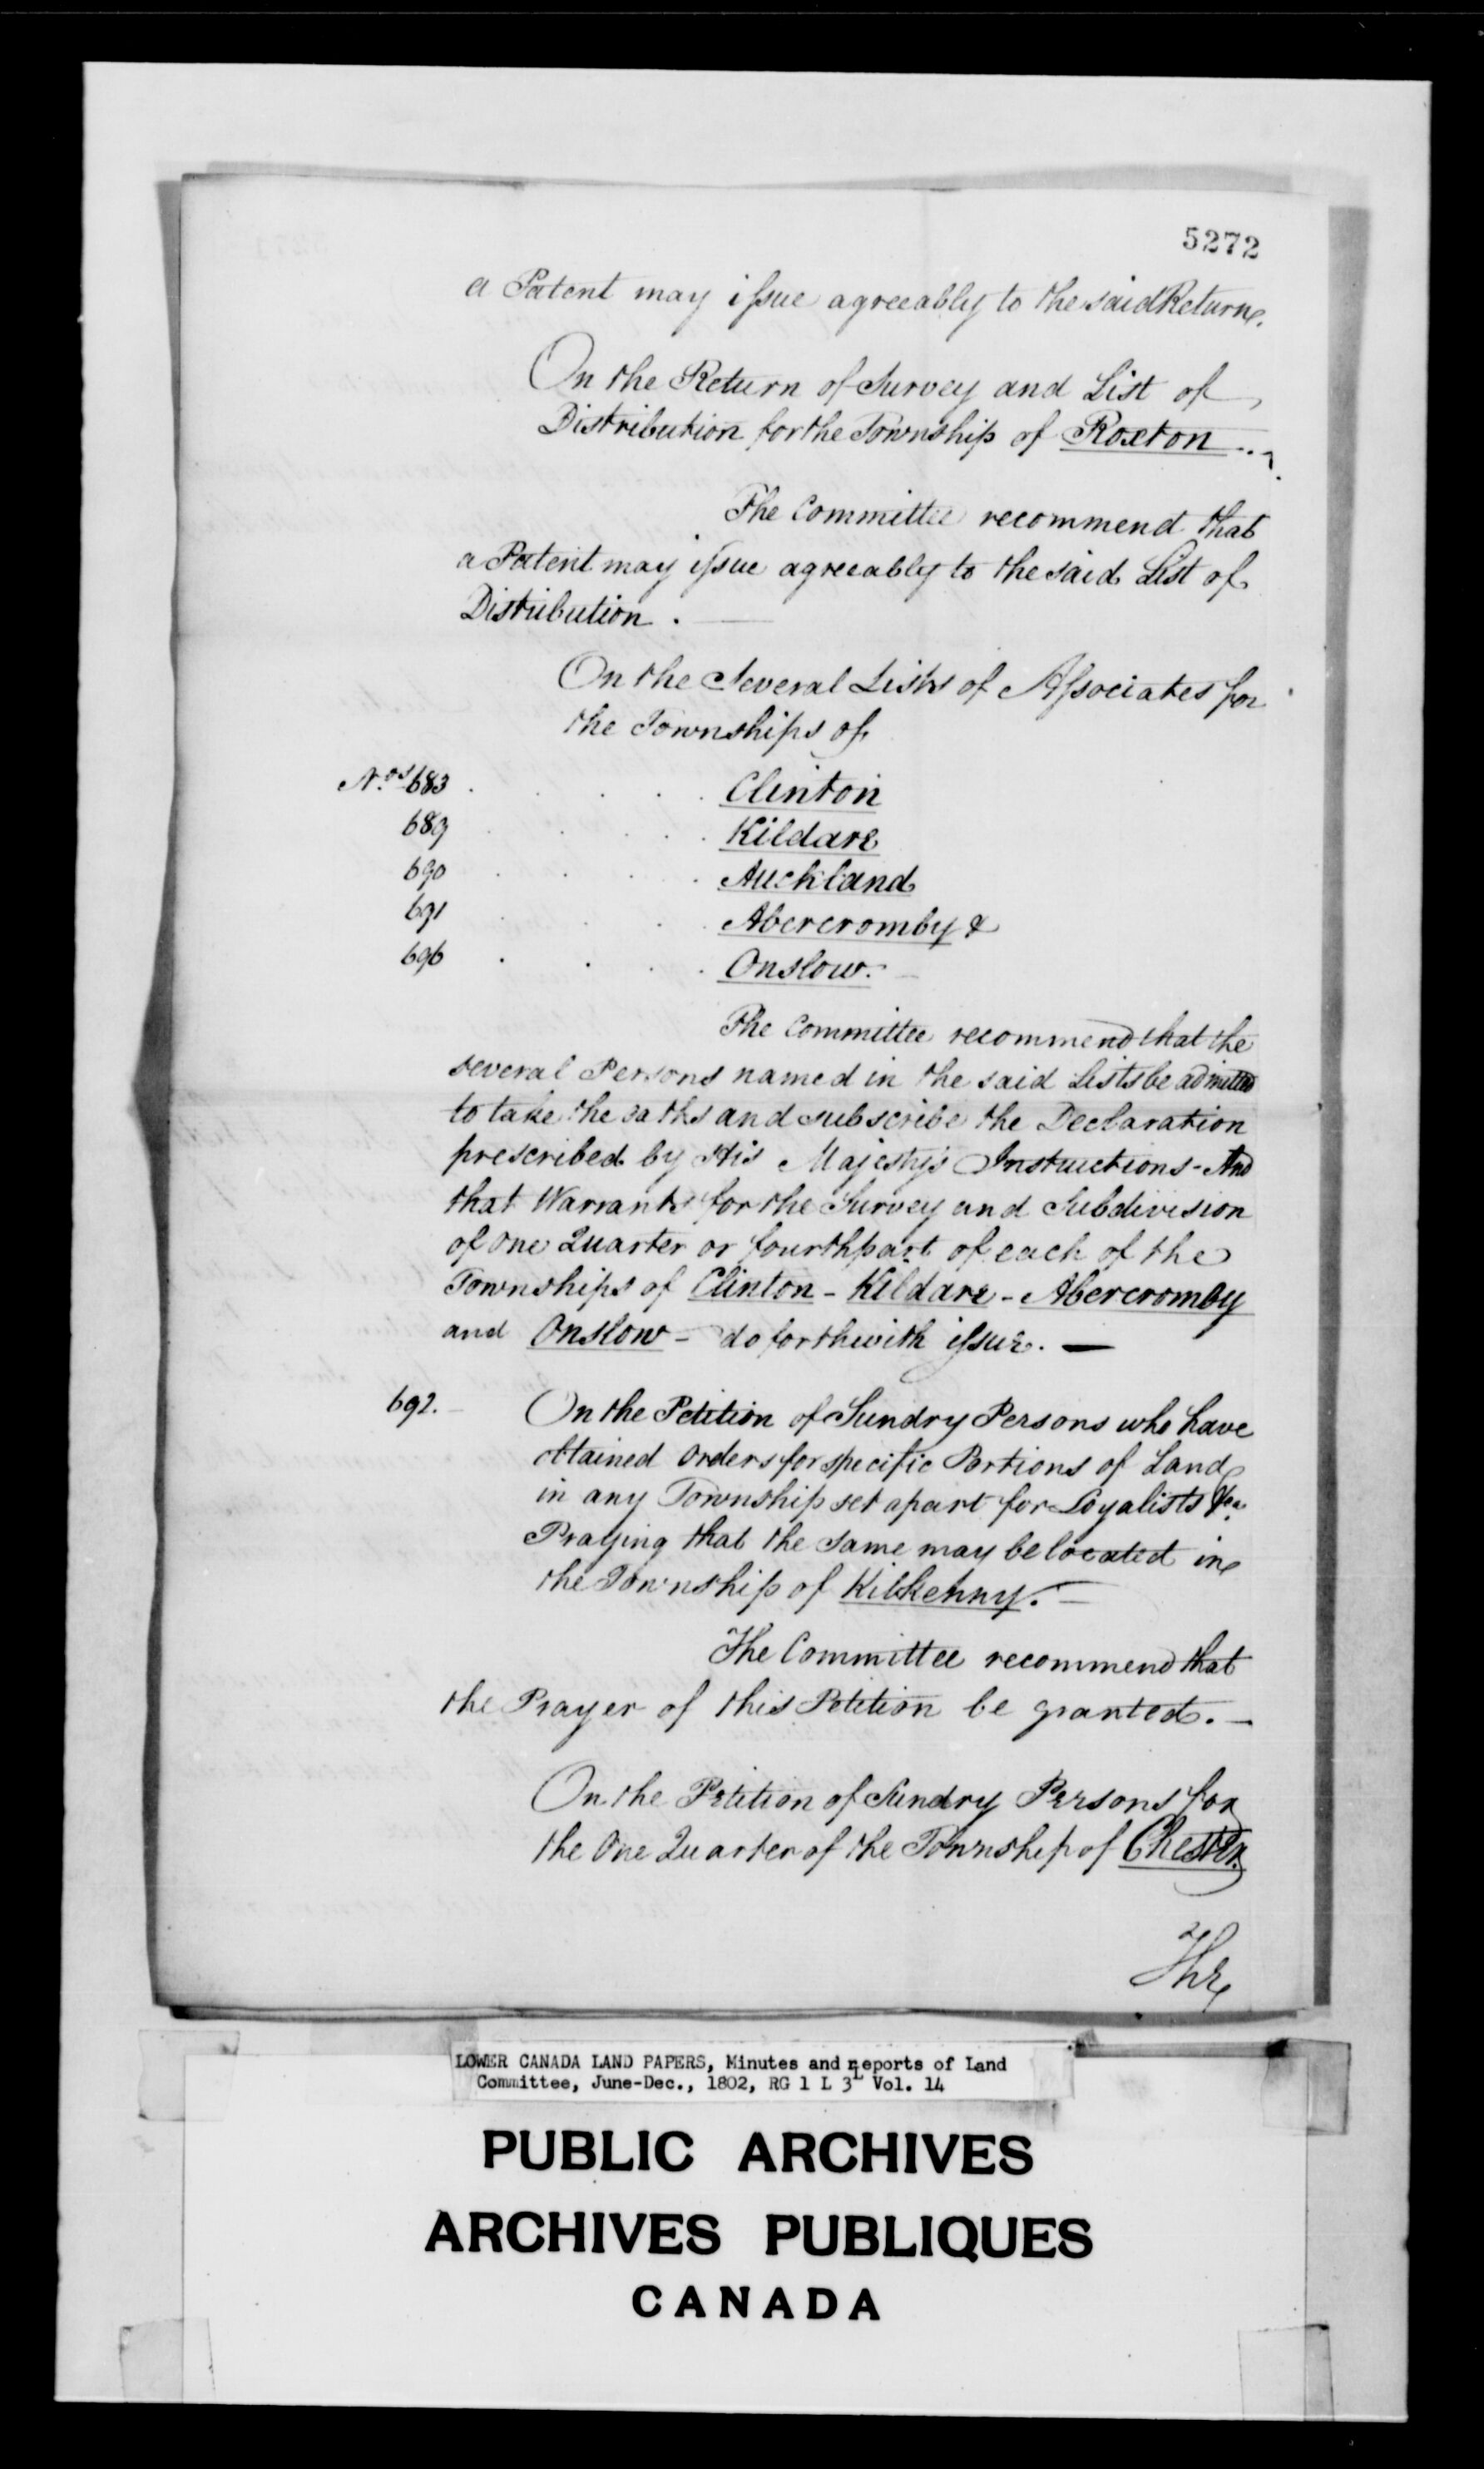 5272
a Patent may issue agreeably to the said Return.
On the Return of Survey and List of
Distribution for the Township of Roxton ..
The Committee recommend that
a Patent may issue agreeably to the said List of
Distribution .
On the Several Lists of Associates for
the Townships of
Nos 683 . . . . Clinton
689 . . . . Kildare
690 . . . . Auckland
691 . . . . Abercromby &
696 . . . . Onslow. —
The Committee recommend that the
several Persons named in the said Lists be admitted
to take the oaths and subscribe the Declaration
prescribed by His Majesty's Instructions - And
that Warrants for the Survey and Subdivision
of one Quarter or fourth part of each of the
Townships of Clinton - Kildare - Abercromby
and Onslow - do forthwith issue. —
692. — On the Petition of Sundry Persons who have
obtained Orders for specific Portions of Land
in any Township set apart for Loyalists &ca
Praying that the same may be located in
the Township of Kilkenny. —
The Committee recommend that
the Prayer of this Petition be granted. —
On the Petition of Sundry Persons for
the One Quarter of the Township of Chester
The
LOWER CANADA LAND PAPERS, Minutes and Reports of Land
Committee, June-Dec., 1802, RG 1 L 3L Vol. 14
PUBLIC ARCHIVES
ARCHIVES PUBLIQUES
CANADA